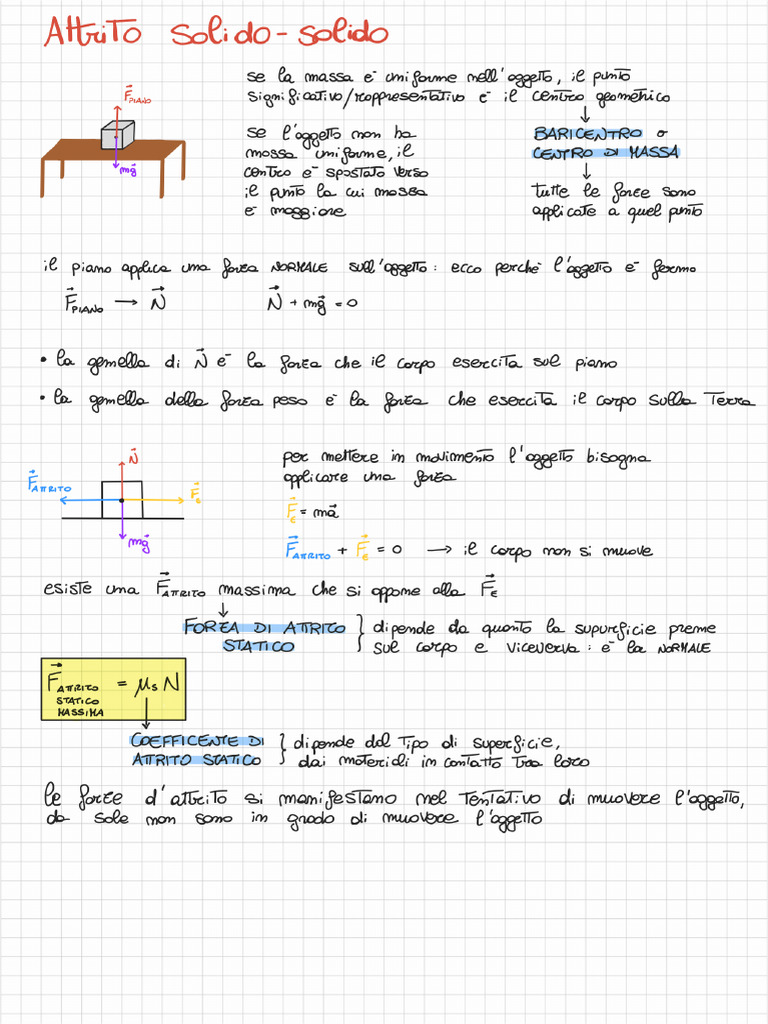 Attrito solido-solido
se la massa è uniforme nell'oggetto, il punto
significativo/rappresentativo è il centro geometrico
F⃗ PIANO
mg⃗
se l'oggetto non ha
massa uniforme, il
centro è spostato verso
il punto la cui massa
è maggiore
↓
BARICENTRO o
CENTRO DI MASSA
↓
tutte le forze sono
applicate a quel punto
il piano applica una forza NORMALE sull'oggetto: ecco perché l'oggetto è fermo
F⃗ PIANO → N⃗ N⃗ + mg⃗ = 0
• la gemella di N⃗ è la forza che il corpo esercita sul piano
• la gemella della forza peso è la forza che esercita il corpo sulla Terra
N⃗
F⃗ ATTRITO
F⃗ E
mg⃗
per mettere in movimento l'oggetto bisogna
applicare una forza
F⃗ E = ma⃗
F⃗ ATTRITO + F⃗ E = 0 → il corpo non si muove
esiste una F⃗ ATTRITO massima che si oppone alla F⃗ E
↓
FORZA DI ATTRITO
STATICO
} dipende da quanto la supurficie preme
sul corpo e viceverva: è la NORMALE
F⃗ ATTRITO STATICO MASSIMA = μs N
↓
COEFFICENTE DI
ATTRITO STATICO
} dipende dal tipo di superficie,
dai materiali in contatto tra loro
le forze d'attrito si manifestano nel tentativo di muovere l'oggetto,
da sole non sono in grado di muovere l'oggetto